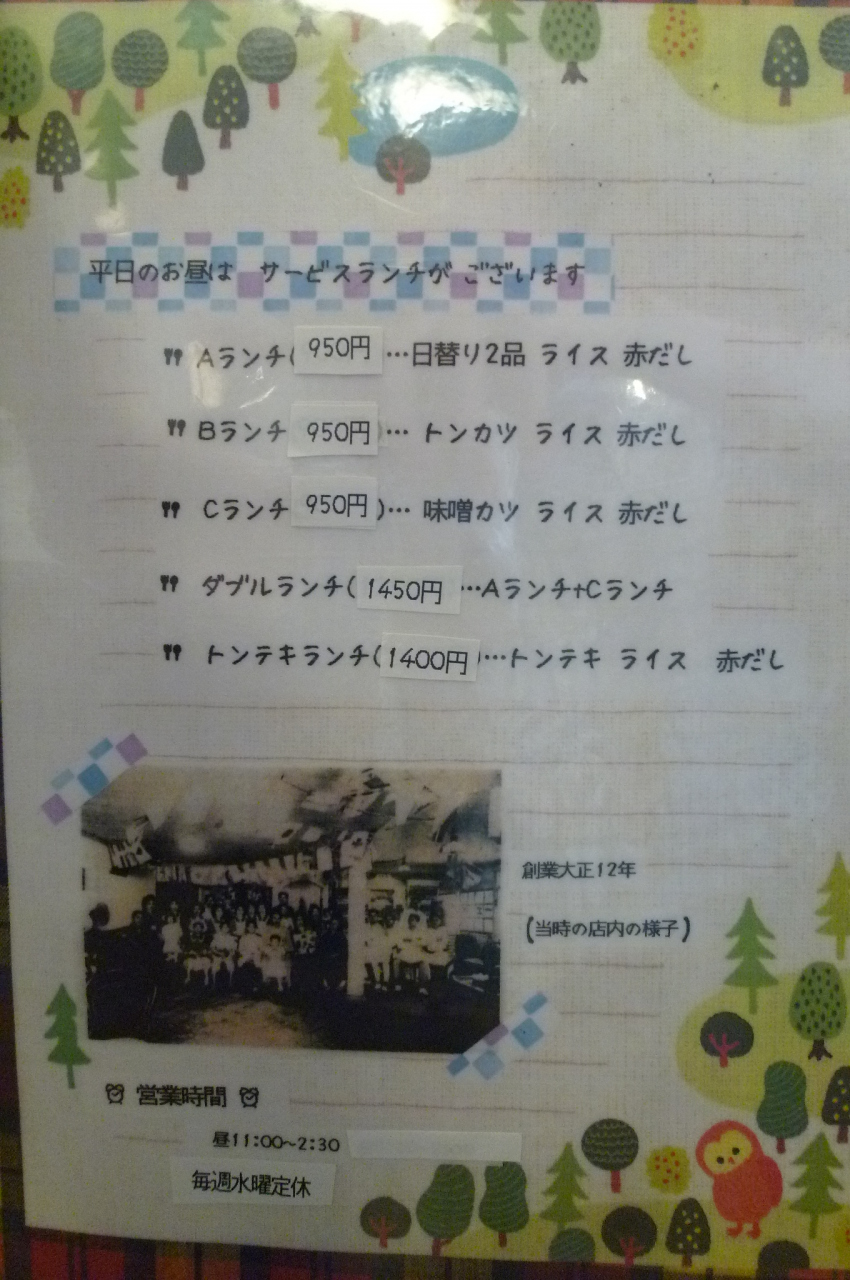 平日のお昼は サービスランチが ございます
Aランチ( 950円 …日替り2品 ライス 赤だし
Bランチ 950円 )… トンカツ ライス 赤だし
Cランチ 950円 )… 味噌カツ ライス 赤だし
ダブルランチ( 1450円 …Aランチ+Cランチ
トンテキランチ( 1400円 )…トンテキ ライス 赤だし
創業大正12年
(当時の店内の様子)
営業時間
昼11:00〜2:30
毎週水曜定休